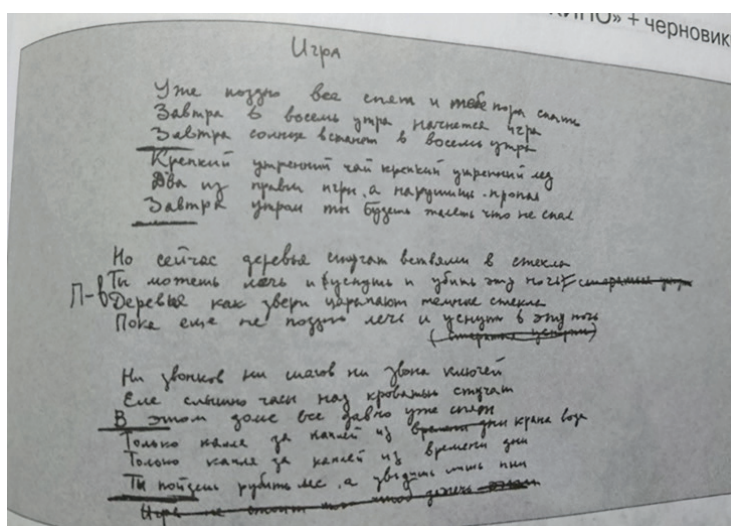 КИНО» + черновик
Игра
Уже поздно все спят и тебе пора спать
Завтра в восемь утра начнется игра
Завтра солнце встанет в восемь утра
Крепкий утренний чай крепкий утренний лед
Два из правил игры, а нарушишь, пропал
Завтра утром ты будешь жалеть что не спал
Но сейчас деревья стучат ветвями в стекла
Ты можешь лечь и уснуть и убить эту ночь
П-в Деревья как звери царапают темные стекла
Пока еще не поздно лечь и уснуть в эту ночь
Ни звонков ни шагов ни звона ключей
Еле слышно часы над кроватью стучат
В этом доме все давно уже спят
Только капля за каплей из времени дни крана вода
Только капля за каплей из времени дни
Ты пойдешь рубить лес, а увидишь лишь пни
Игра не стоит